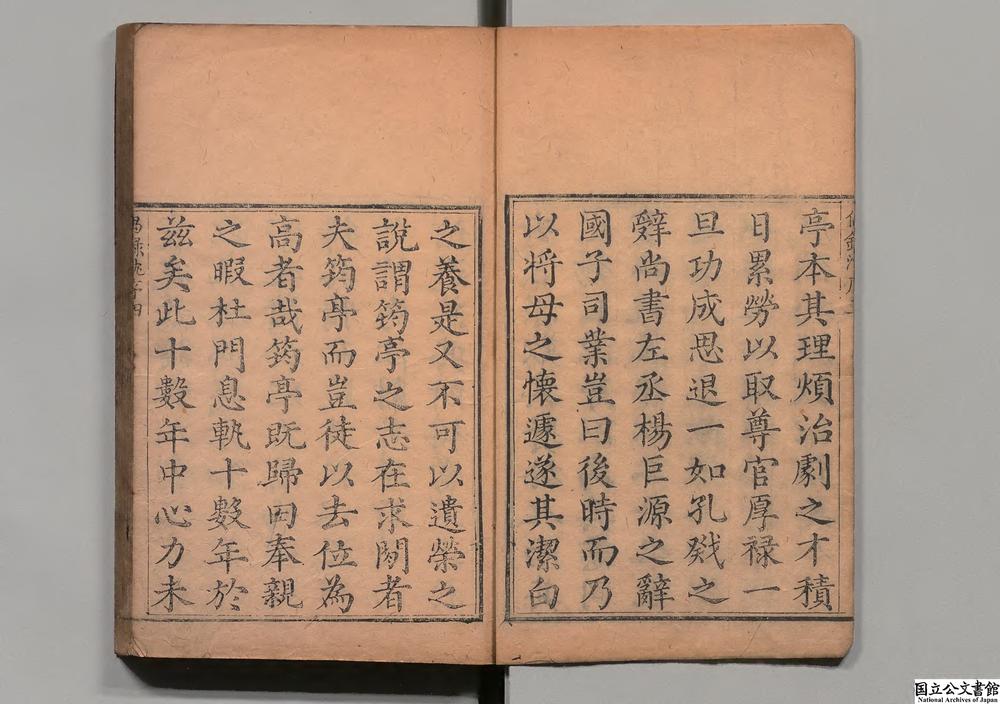 亭本其理煩治劇之才積
日累勞以取尊官厚祿一
旦功成思退一如孔戣之
辤尚書左丞楊巨源之辭
國子司業豈曰後時而乃
以将母之懷遽遂其潔白
之養是又不可以遺榮之
說謂筠亭之志在求閒者
夫筠亭而豈徒以去位為
高者哉筠亭既歸田奉親
之暇杜門息軌十數年於
茲矣此十數年中心力未
国立公文書館
National Archives of Japan